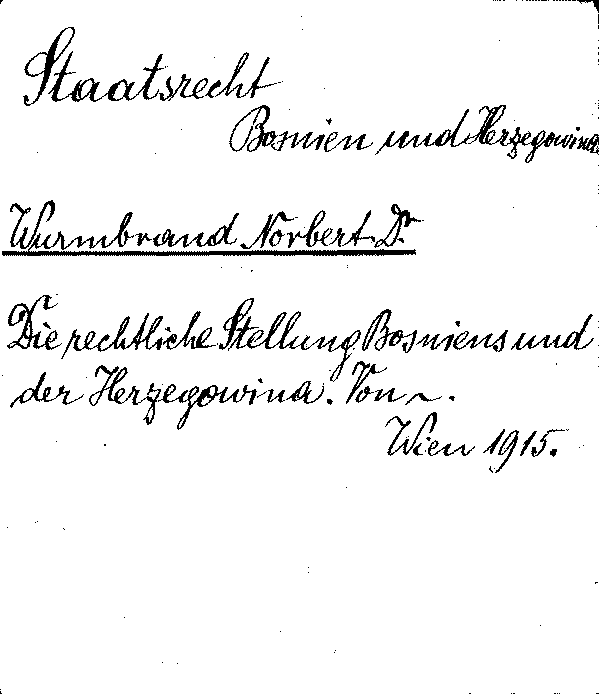 Staatsrecht
Bosnien und Herzegowina
Wurmbrand Norbert Dr.
Die rechtliche Stellung Bosniens und
der Herzegowina. Von ~.
Wien 1915.